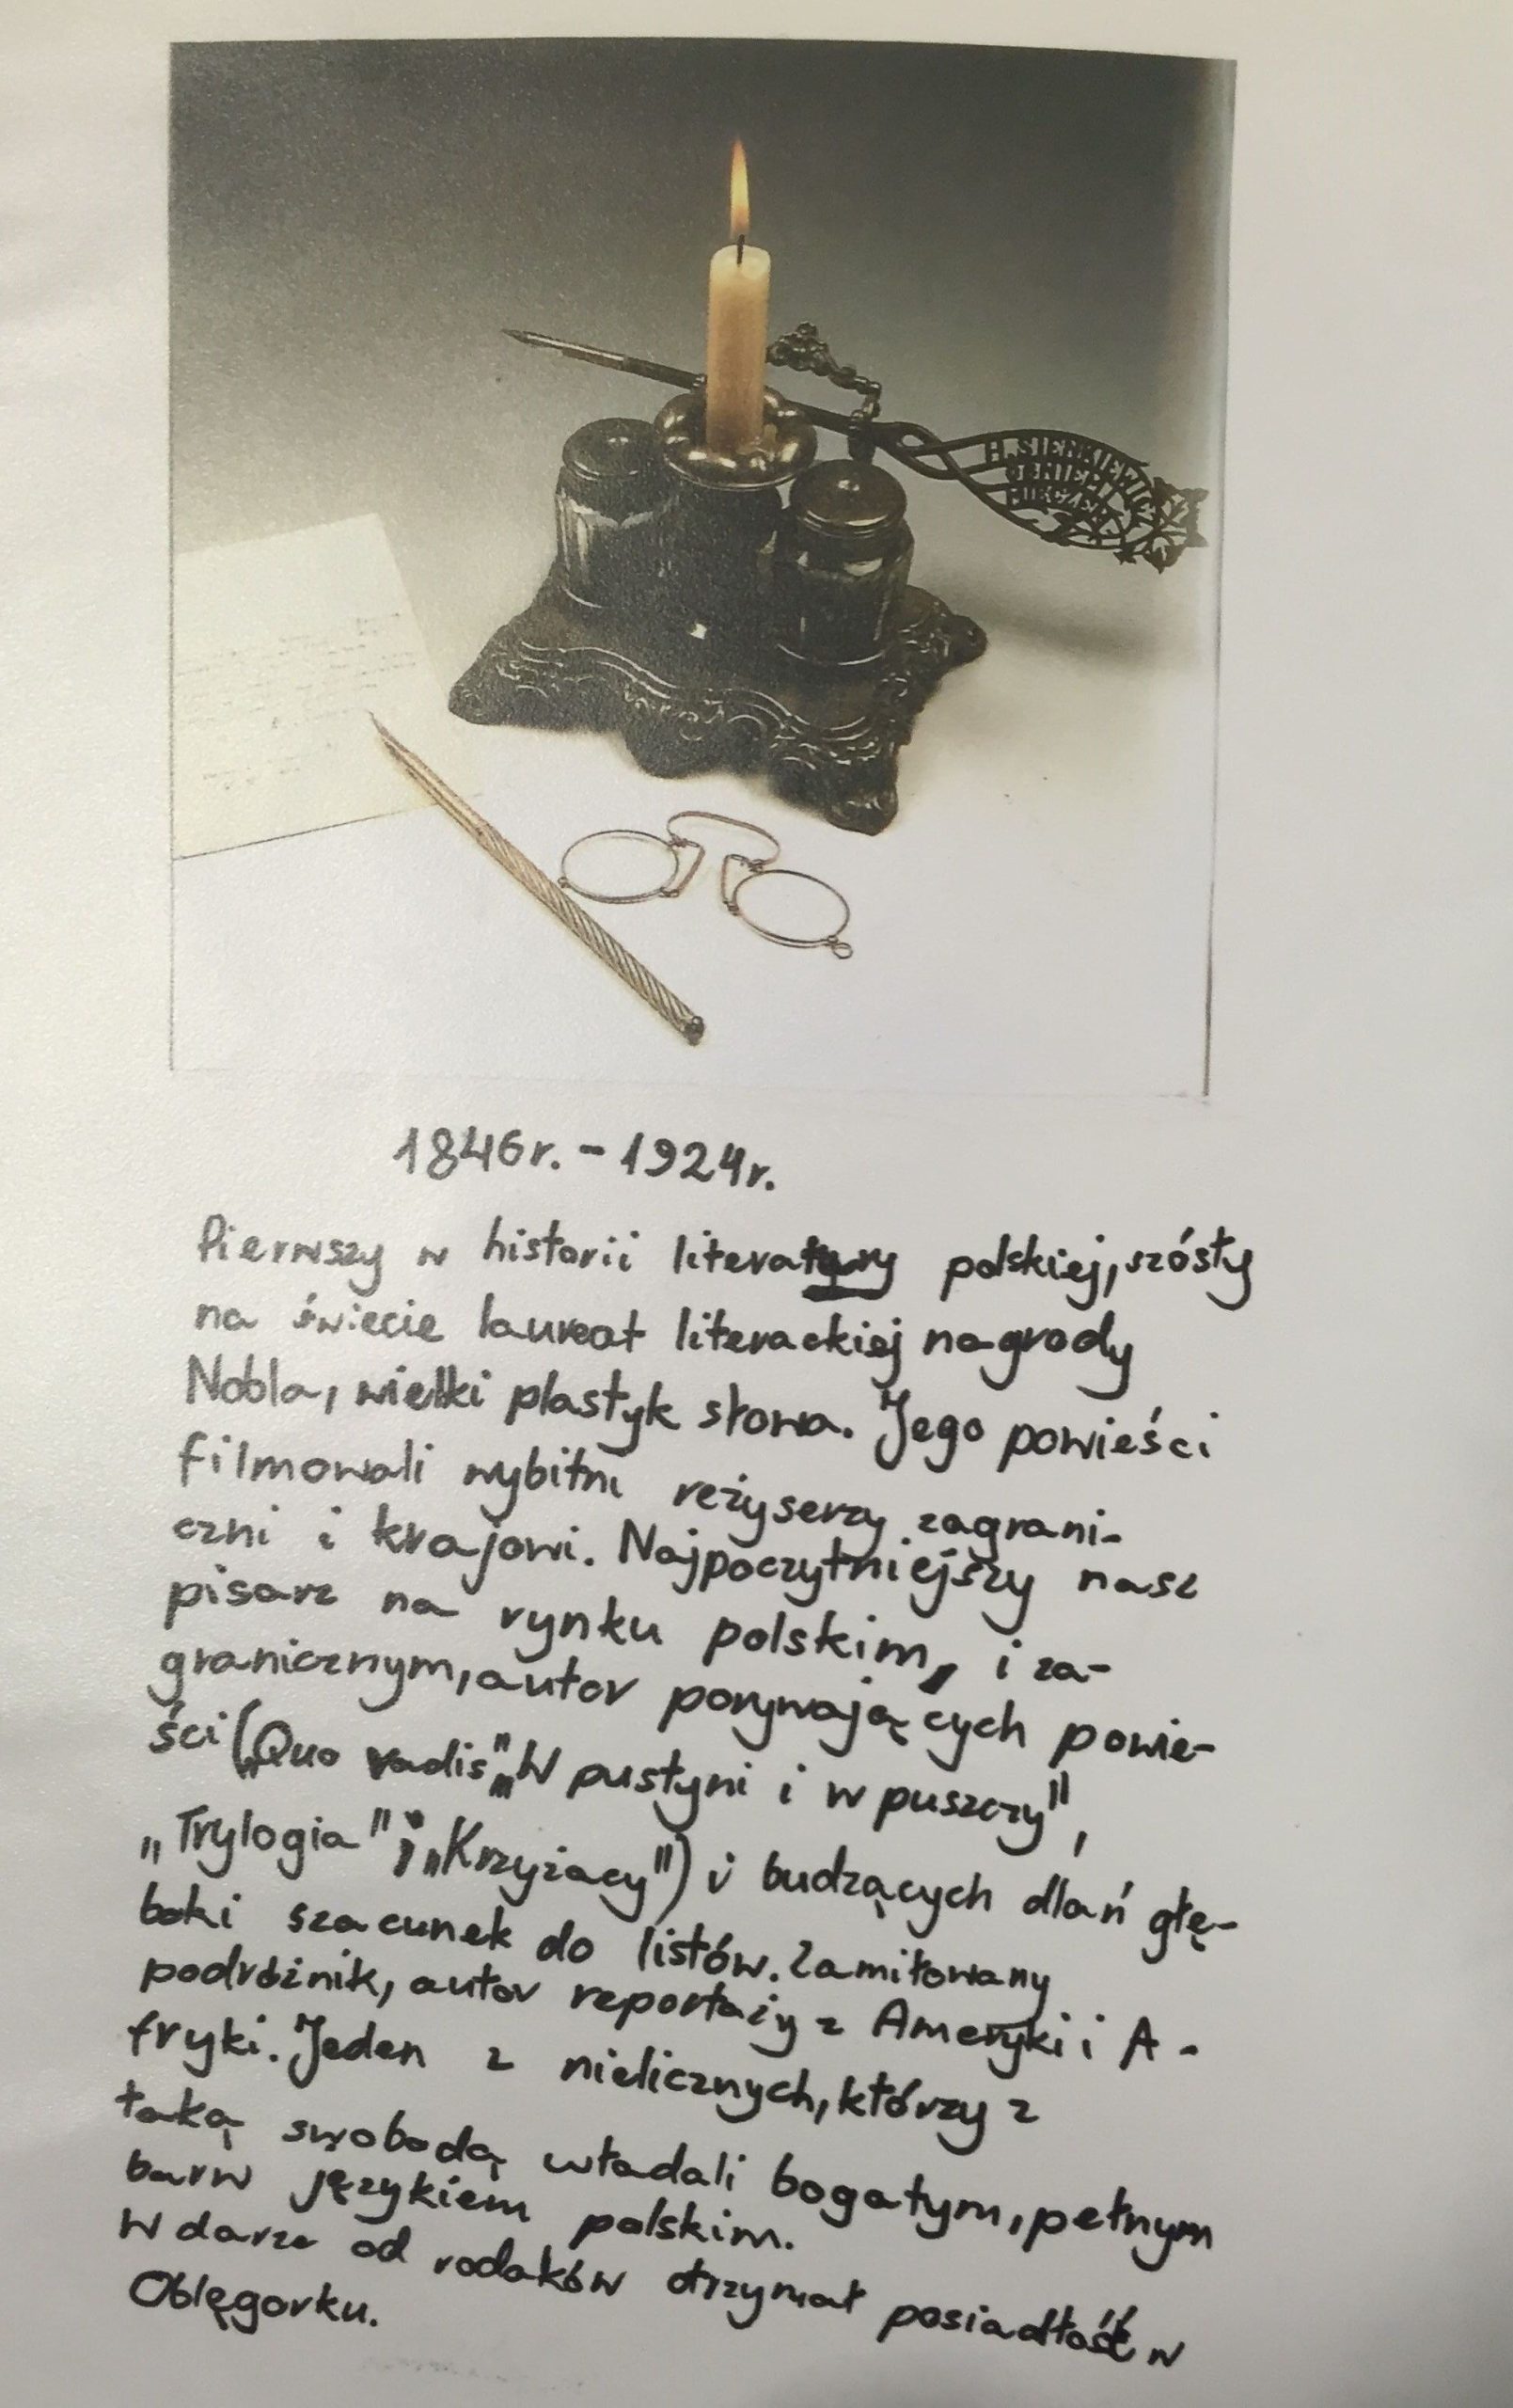 H. SIENKIEWICZ
OGNIEM I
MIECZEM
1846r. - 1924r.
Pierwszy w historii literatury polskiej, szósty
na świecie laureat literackiej nagrody
Nobla, wielki plastyk słowa. Jego powieści
filmowali wybitni reżyserzy zagrani-
czni i krajowi. Najpoczytniejszy nasz
pisarz na rynku polskim, i za-
granicznym, autor porywających powie-
ści („Quo vadis” „W pustyni i w puszczy”,
„Trylogia” i „Krzyżacy”) i budzących dlań głę-
boki szacunek do listów. Zamiłowany
podróżnik, autor reportaży z Ameryki i A-
fryki. Jeden z nielicznych, którzy z
taką swobodą władali bogatym, pełnym
barw językiem polskim.
W darze od rodaków otrzymał posiadłość w
Oblęgorku.